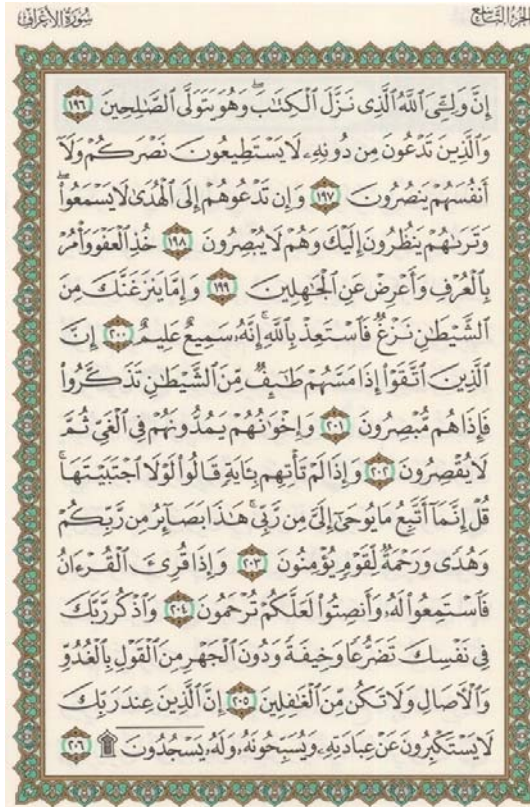 الجزء التاسع
سورة الأعراف
إِنَّ وَلِـِّۧيَ ٱللَّهُ ٱلَّذِى نَزَّلَ ٱلْكِتَٰبَ ۖ وَهُوَ يَتَوَلَّى ٱلصَّٰلِحِينَ ١٩٦
وَٱلَّذِينَ تَدْعُونَ مِن دُونِهِۦ لَا يَسْتَطِيعُونَ نَصْرَكُمْ وَلَآ
أَنفُسَهُمْ يَنصُرُونَ ١٩٧ وَإِن تَدْعُوهُمْ إِلَى ٱلْهُدَىٰ لَا يَسْمَعُوا۟ ۖ
وَتَرَىٰهُمْ يَنظُرُونَ إِلَيْكَ وَهُمْ لَا يُبْصِرُونَ ١٩٨ خُذِ ٱلْعَفْوَ وَأْمُرْ
بِٱلْعُرْفِ وَأَعْرِضْ عَنِ ٱلْجَٰهِلِينَ ١٩٩ وَإِمَّا يَنزَغَنَّكَ مِنَ
ٱلشَّيْطَٰنِ نَزْغٌ فَٱسْتَعِذْ بِٱللَّهِ ۚ إِنَّهُۥ سَمِيعٌ عَلِيمٌ ٢٠٠ إِنَّ
ٱلَّذِينَ ٱتَّقَوْا۟ إِذَا مَسَّهُمْ طَٰٓئِفٌ مِّنَ ٱلشَّيْطَٰنِ تَذَكَّرُوا۟
فَإِذَا هُم مُّبْصِرُونَ ٢٠١ وَإِخْوَٰنُهُمْ يَمُدُّونَهُمْ فِى ٱلْغَىِّ ثُمَّ
لَا يُقْصِرُونَ ٢٠٢ وَإِذَا لَمْ تَأْتِهِم بِـَٔايَةٍ قَالُوا۟ لَوْلَا ٱجْتَبَيْتَهَا ۚ
قُلْ إِنَّمَآ أَتَّبِعُ مَا يُوحَىٰٓ إِلَىَّ مِن رَّبِّى ۚ هَٰذَا بَصَآئِرُ مِن رَّبِّكُمْ
وَهُدًى وَرَحْمَةٌ لِّقَوْمٍ يُؤْمِنُونَ ٢٠٣ وَإِذَا قُرِئَ ٱلْقُرْءَانُ
فَٱسْتَمِعُوا۟ لَهُۥ وَأَنصِتُوا۟ لَعَلَّكُمْ تُرْحَمُونَ ٢٠٤ وَٱذْكُر رَّبَّكَ
فِى نَفْسِكَ تَضَرُّعًا وَخِيفَةً وَدُونَ ٱلْجَهْرِ مِنَ ٱلْقَوْلِ بِٱلْغُدُوِّ
وَٱلْءَاصَالِ وَلَا تَكُن مِّنَ ٱلْغَٰفِلِينَ ٢٠٥ إِنَّ ٱلَّذِينَ عِندَ رَبِّكَ
لَا يَسْتَكْبِرُونَ عَنْ عِبَادَتِهِۦ وَيُسَبِّحُونَهُۥ وَلَهُۥ يَسْجُدُونَ ۩ ٢٠٦